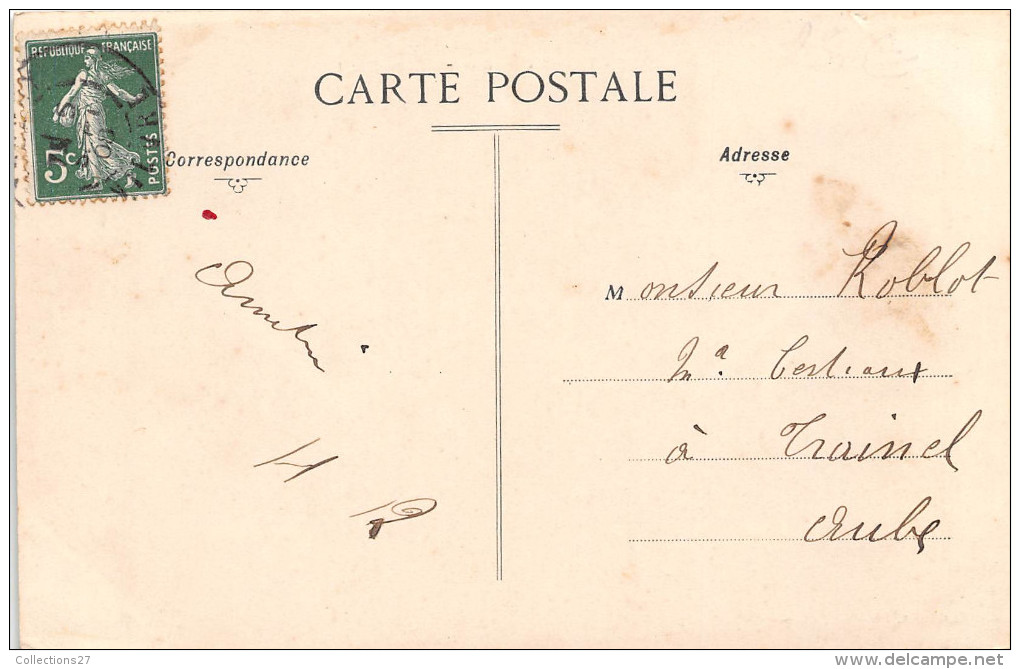 REPUBLIQUE FRANÇAISE
5c
POSTES
CARTE POSTALE
Correspondance
Adresse
Monsieur Roblot
Md. Bestiaux
à Trainel
Aube
Collections27
www.delcampe.net